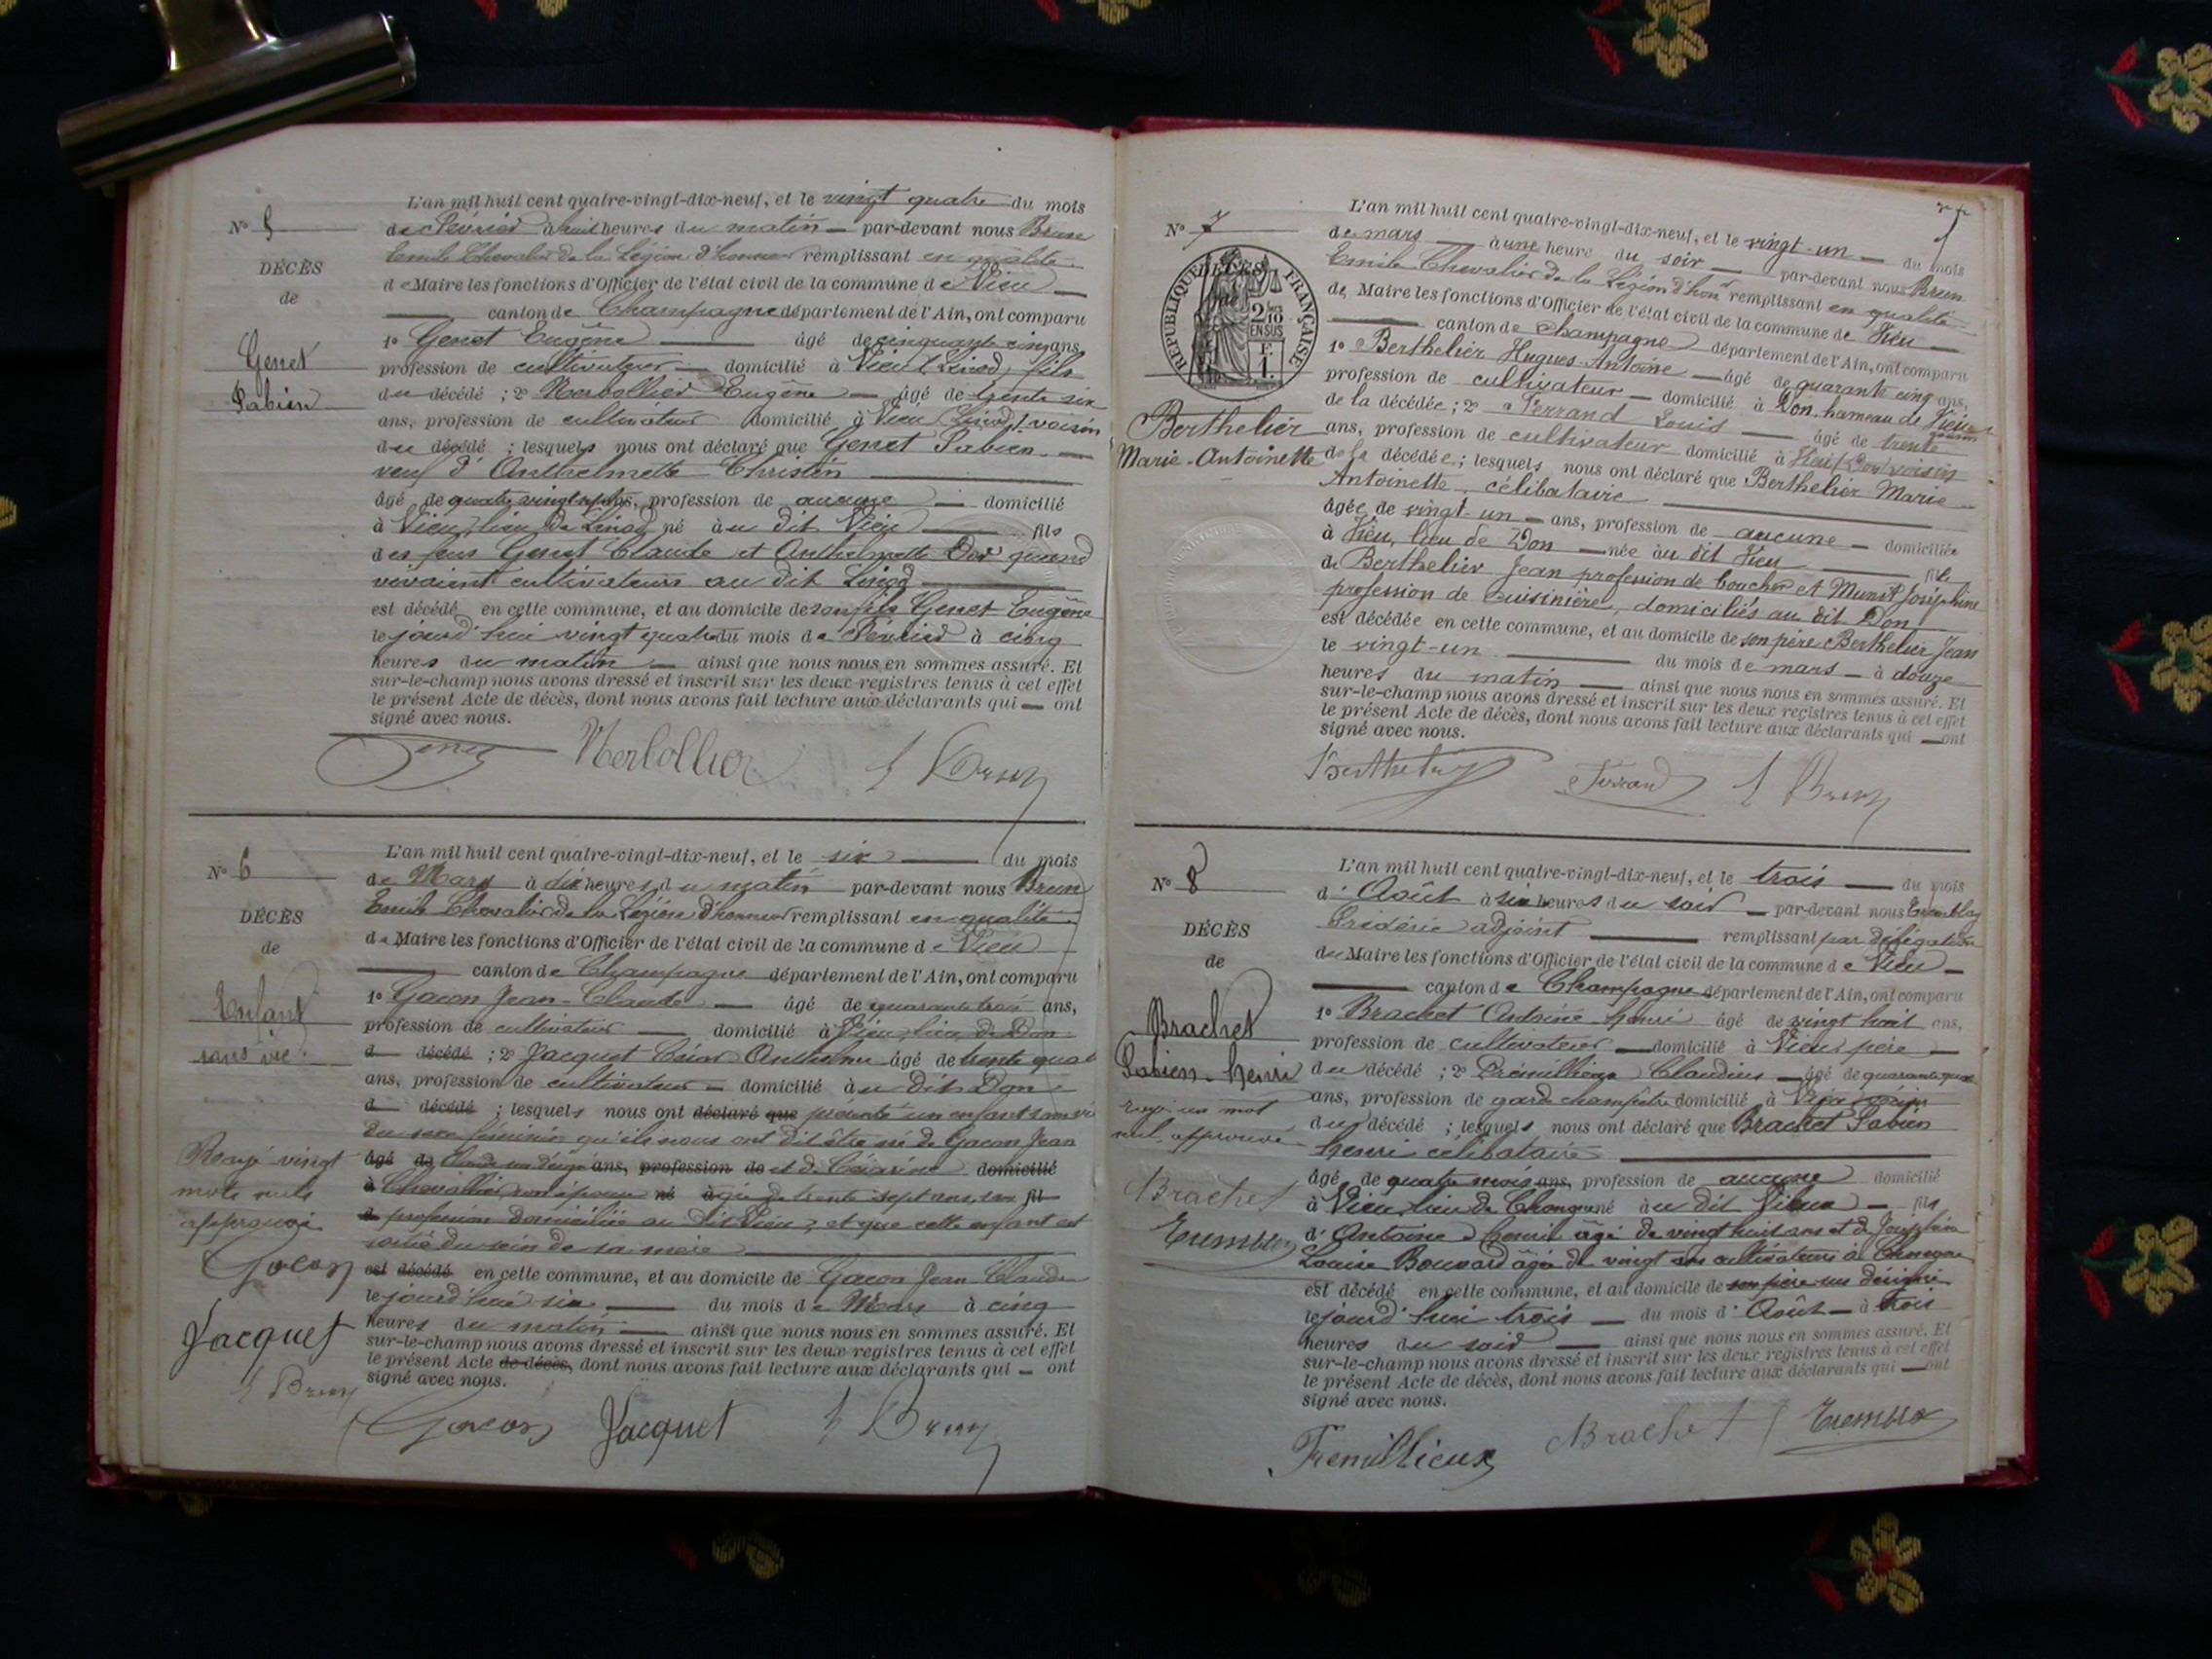 N° 5
DÉCÈS
de
Genet
Fabien
L'an mil huit cent quatre-vingt-dix-neuf, et le vingt quatre du mois
de Février à huit heures du matin par-devant nous Brun
Emile Chevalier de la Légion d'honneur remplissant en qualité
de Maire les fonctions d'Officier de l'état civil de la commune de Vieu
canton de Champagne département de l'Ain, ont comparu
1° Genet Eugène âgé de cinquante cinq ans,
profession de cultivateur domicilié à Vieu (Linod) fils
du décédé ; 2° Merlollier Eugène âgé de trente six
ans, profession de cultivateur domicilié à Vieu (Linod) voisin
du décédé ; lesquels nous ont déclaré que Genet Fabien
veuf d'Anthelmette Christin
âgé de quatre vingt ans, profession de aucune domicilié
à Vieu, lieu de Linod né à u dit Vieu fils
des feus Genet Claude et Anthelmette quand
vivaient cultivateurs au dit Linod
est décédé en cette commune, et au domicile de son fils Genet Eugène
le jourd'hui vingt quatre du mois de Février à cinq
heures du matin ainsi que nous nous en sommes assuré. Et
sur-le-champ nous avons dressé et inscrit sur les deux registres tenus à cet effet
le présent Acte de décès, dont nous avons fait lecture aux déclarants qui ont
signé avec nous.
Genet Merlollier E Brun
N° 6
DÉCÈS
de
Enfant
sans vie.
L'an mil huit cent quatre-vingt-dix-neuf, et le six du mois
de Mars à dix heures du matin par-devant nous Brun
Emile Chevalier de la Légion d'honneur remplissant en qualité
de Maire les fonctions d'Officier de l'état civil de la commune de Vieu
canton de Champagne département de l'Ain, ont comparu
1° Gacon Jean-Claude âgé de quarante trois ans,
profession de cultivateur domicilié à Vieu, lieu de Don
d décédé ; 2° Jacquet César Anthelme âgé de trente quat
ans, profession de cultivateur domicilié à u dit Don
d décédé ; lesquels nous ont déclaré que présenté un enfant sans vie
du sexe féminin qu'ils nous ont dit être né de Gacon Jean
âgé de Claude sus désigné ans, profession de et de Césarine domicilié
à Chevallier son épouse né âgée de trente sept ans, san fil
d profession domiciliée au dit Vieu, et que cette enfant est
sortie du sein de sa mère
est décédé en cette commune, et au domicile de Gacon Jean Claude
le jourd'hui six du mois de Mars à cinq
heures du matin ainsi que nous nous en sommes assuré. Et
sur-le-champ nous avons dressé et inscrit sur les deux registres tenus à cet effet
le présent Acte de décès, dont nous avons fait lecture aux déclarants qui ont
signé avec nous.
Rayé vingt
mots nuls
approuvé
Gacon
Jacquet
E Brun
Gacon Jacquet E Brun
N° 7
RÉPUBLIQUE FRANÇAISE
2/10
EN SUS
F.
1.
Berthelier
Marie-Antoinette
L'an mil huit cent quatre-vingt-dix-neuf, et le vingt-un du mois
de mars à une heure du soir par-devant nous Brun
Emile Chevalier de la Légion d'honr remplissant en qualité
de Maire les fonctions d'Officier de l'état civil de la commune de Vieu
canton de Champagne département de l'Ain, ont comparu
1° Berthelier Hugues-Antoine âgé de quarante cinq ans,
profession de cultivateur domicilié à Don, hameau de Vieu
de la décédée ; 2° Ferrand Louis âgé de trente
ans, profession de cultivateur domicilié à Vieu (Don) voisin
de la décédée ; lesquels nous ont déclaré que Berthelier Marie
Antoinette, célibataire
âgée de vingt-un ans, profession de aucune domiciliée
à Vieu, lieu de Don née àu dit Vieu fille
de Berthelier Jean profession de boucher et Munet Joséphine
profession de cuisinière, domiciliés au dit Don
est décédée en cette commune, et au domicile de son père Berthelier Jean
le vingt-un du mois de mars à douze
heures du matin ainsi que nous nous en sommes assuré. Et
sur-le-champ nous avons dressé et inscrit sur les deux registres tenus à cet effet
le présent Acte de décès, dont nous avons fait lecture aux déclarants qui ont
signé avec nous.
Berthelier Ferrand E Brun
N° 8
DÉCÈS
de
Brachet
Fabien-Henri
rayé un mot
nul, approuvé
Brachet
L'an mil huit cent quatre-vingt-dix-neuf, et le trois du mois
d'Août à six heures du soir par-devant nous
Frédéric adjoint remplissant par délégation
du Maire les fonctions d'Officier de l'état civil de la commune de Vieu
canton de Champagne département de l'Ain, ont comparu
1° Brachet Antoine Henri âgé de vingt huit ans,
profession de cultivateur domicilié à Vieu, père
du décédé ; 2° Prémillieux Claudius âgé de quarante quat
ans, profession de garde champêtre domicilié à Vieu voisin
du décédé ; lesquels nous ont déclaré que Brachet Fabien
Henri célibataire
âgé de quatre mois ans, profession de aucune domicilié
à Vieu, lieu de né àu dit fils
d'Antoine Henri âgé de vingt huit ans et de Joséphine
Louise Bouvard âgée de vingt ans cultivateurs à
est décédé en cette commune, et au domicile de son père sus désigné
le jourd'hui trois du mois d'Août à trois
heures du soir ainsi que nous nous en sommes assuré. Et
sur-le-champ nous avons dressé et inscrit sur les deux registres tenus à cet effet
le présent Acte de décès, dont nous avons fait lecture aux déclarants qui ont
signé avec nous.
Premillieux Brachet